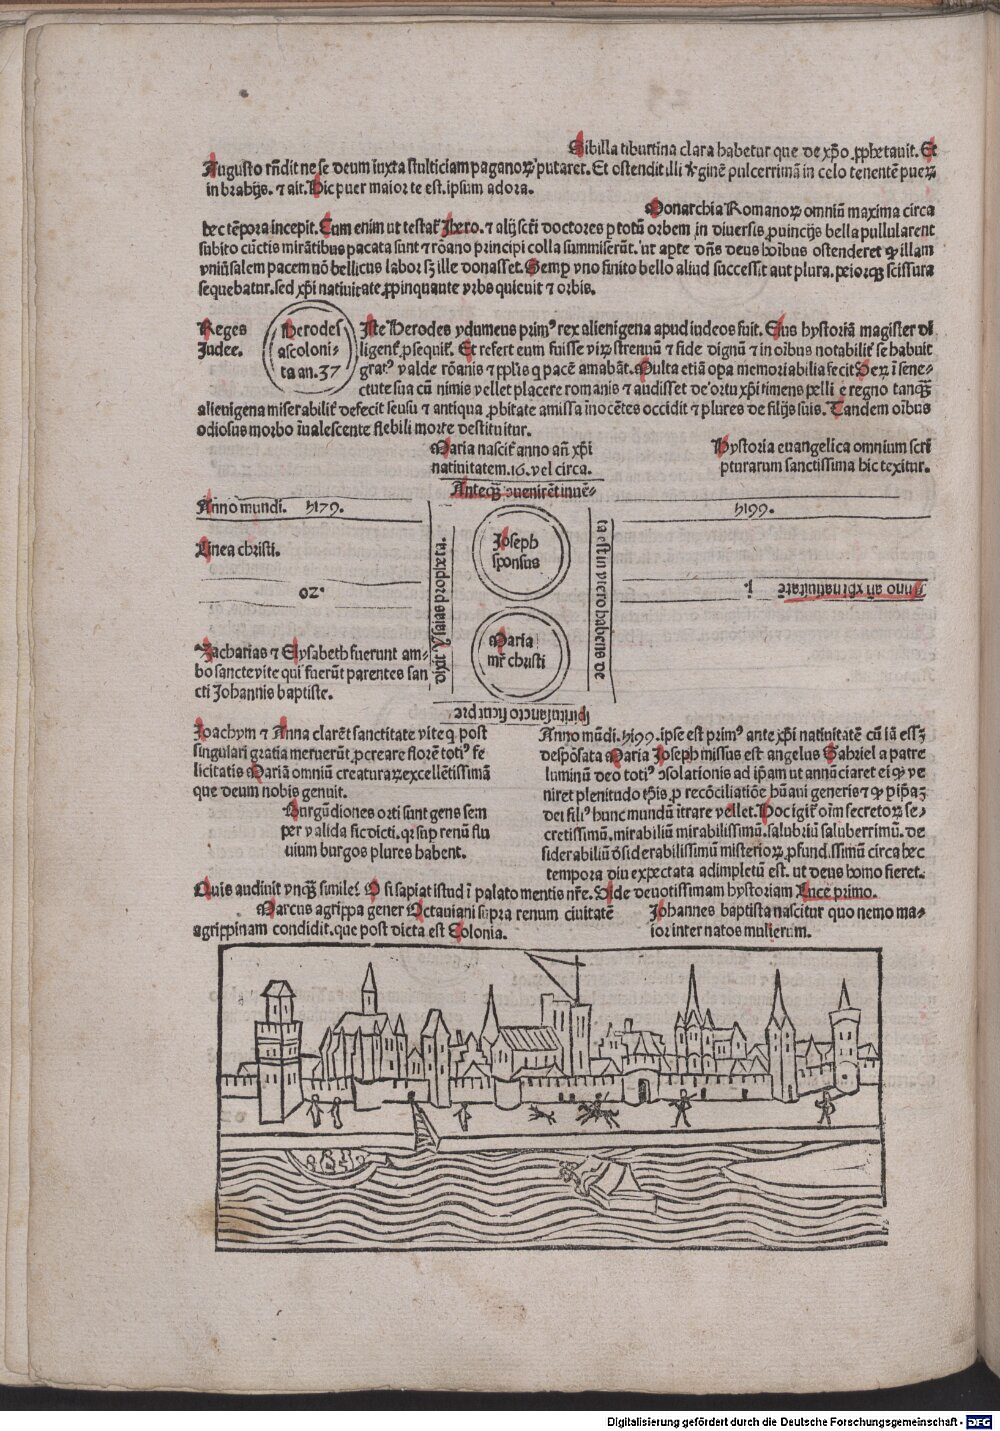 Sibilla tiburtina clara habetur que de xp̄o ꝓphetauit. Et
Augusto rn̄dit ne se deum iuxta stulticiam paganoꝝ putaret. Et ostendit illi v̄ginē pulcerrimā in celo tenentē pueꝝ
in brahijs. ⁊ ait. Hic puer maior te est. ipsum adora.
Monarchia Romanoꝝ omniū maxima circa
hec tēpora incepit. Cum enim ut testat᷑ Jhero. ⁊ alij scti doctores ꝑ totū orbem in diuersis ꝓuincijs bella pullularent
subito cūctis mirātibus pacata sunt ⁊ rōano principi colla summiserūt. ut apte dn̄s deus hoībus ostenderet ꝙ illam
vniūsalem pacem nō bellicus labor sꝫ ille donasset. Semꝑ vno finito bello aliud successit aut plura. peiorqꝫ scissura
sequebatur. sed xp̄i natiuitate ꝓpinquante vrbs quieuit ⁊ orbis.
Reges
Judee.
Herodes
ascoloni-
ta an. 37
Iste Herodes ydumeus prim᷒ rex alienigena apud iudeos fuit. Eius hystoriā magister di
ligent᷑ ꝓsequit᷑. Et refert eum fuisse viꝝ strenuū ⁊ fide dignū ⁊ in oībus notabilit᷑ se habuit
grat᷒ valde rōanis ⁊ pplis q pacē amabāt. Multa etiā opa memorabilia fecit Veꝝ ī sene-
ctute sua cū nimis vellet placere romanis ⁊ audisset de ortu xp̄i timens pelli e regno tanqꝫ
alienigena miserabilit᷑ defecit sensu ⁊ antiqua ꝓbitate amissa īnocētes occidit ⁊ plures de filijs suis. Tandem oībus
odiosus morbo īualescente flebili morte destituitur.
Maria nascit᷑ anno an̄ xp̄i
natiuitatem. 16. vel circa.
Hystoria euangelica omnium scri
pturarum sanctissima hic texitur.
Anteqꝫ ꝯuenirēt inuē-
Anno mundi. 5179.
5199.
Linea christi.
02.
Joseph
sponsus
Maria
mr̄ christi
ta est in vtero habens de
Anno an̄ xp̄i natiuitatē j.
dixit Ysaias propheta.
spiritu sancto sicut pre
Zacharias ⁊ Elysabeth fuerunt am-
bo sancte vite qui fuerūt parentes san
cti Johannis baptiste.
Joachym ⁊ Anna clarēt sanctitate vite q. post
singulari gratia meruerūt ꝓcreare florē toti᷒ fe
licitatis Mariā omniū creaturaꝝ excellētissimā
que deum nobis genuit.
Burgūdiones orti sunt gens sem
per valida sic dicti. qr sup renū flu
uium burgos plures habent.
Anno mūdi. 5199. ipse est prim᷒ ante xp̄i natiuitatē cū iā essꝫ
despōsata Maria Joseph missus est angelus Gabriel a patre
luminū deo toti᷒ ꝯsolationis ad ip̄am ut annūciaret ei ꝙ ve
niret plenitudo tp̄is. p recōciliatiōe hūani generis ⁊ ꝙ p ip̄aꝫ
dei fili᷒ hunc mundū ītrare vellet. Hoc igit᷑ oīm secretoꝝ se-
cretissimū. mirabiliū mirabilissimū. salubriū saluberrimū. de
siderabiliū desiderabilissimū misterioꝝ ꝓfundissimū circa hec
tempora diu expectata adimpletū est. ut deus homo fieret.
Quis audiuit vnqꝫ simile? O si sapiat istud ī palato mentis nr̄e. Vide deuotissimam hystoriam Luce primo.
Marcus agrippa gener Octauiani supra renum ciuitatē
agrippinam condidit. que post dicta est Colonia.
Johannes baptista nascitur quo nemo ma-
ior inter natos mulierum.
Digitalisierung gefördert durch die Deutsche Forschungsgemeinschaft - DFG